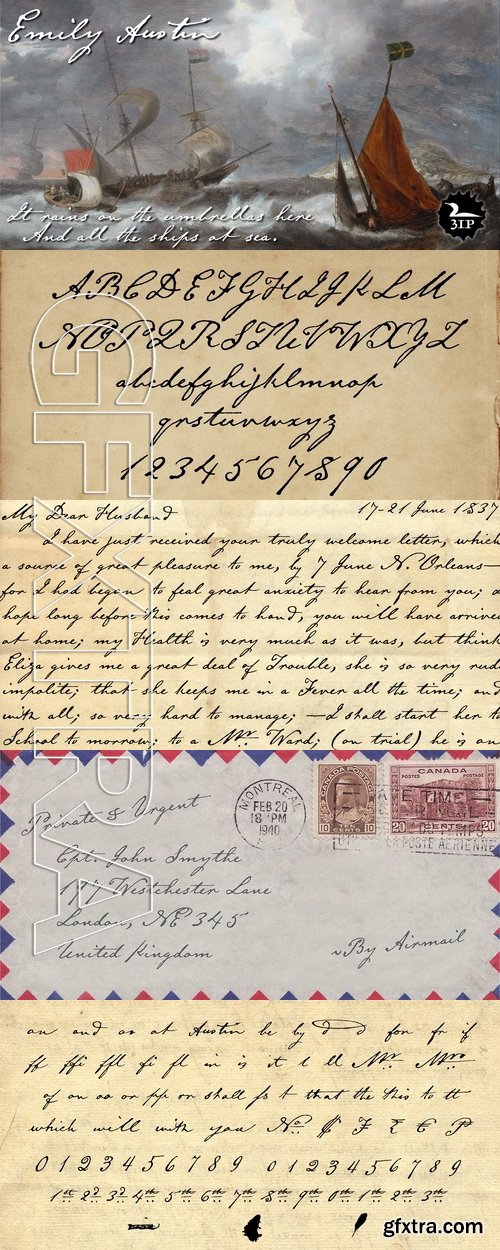 Emily Austin
It rains on the umbrellas here
And all the ships at sea.
3IP
ABCDEFGHIJKLM
NOPQRSTUVWXYZ
abcdefghijklmnop
qrstuvwxyz
1234567890
GFXTRA
My Dear Husband 17-21 June 1837
I have just received your truly welcome letter, which
a source of great pleasure to me, by 7 June N. Orleans—
for I had begun to feal great anxiety to hear from you; a
hope long before this comes to hand, you will have arrived
at home; my Health is very much as it was, but think
Eliza gives me a great deal of Trouble, she is so very rud
impolite; that she keeps me in a Fever all the time; and
with all; so very hard to manage; —I shall start her to
School to morrow; to a Mr. Ward; (on trial) he is an
MONTREAL
FEB 20
18 PM
1940
CANADA POSTAGE
10 CENTS 10
CANADA
POSTES POSTAGE
20 CENTS 20
E TIME
LA POSTE AÉRIENNE
Private & Urgent
Cpt. John Smythe
197 Westchester Lane
London, NE 345
United Kingdom
By Airmail
an and as at Austin be by d d for fr if
ff ffi ffl fi fl in is it l ll Mr. Mrs.
of on oo or pp rr shall ss t that the this to tt
which will with you No.
0 1 2 3 4 5 6 7 8 9 0 1 2 3 4 5 6 7 8 9
1st 2d 3d 4th 5th 6th 7th 8th 9th 0th 1th 2th 3th
gfxtra.com